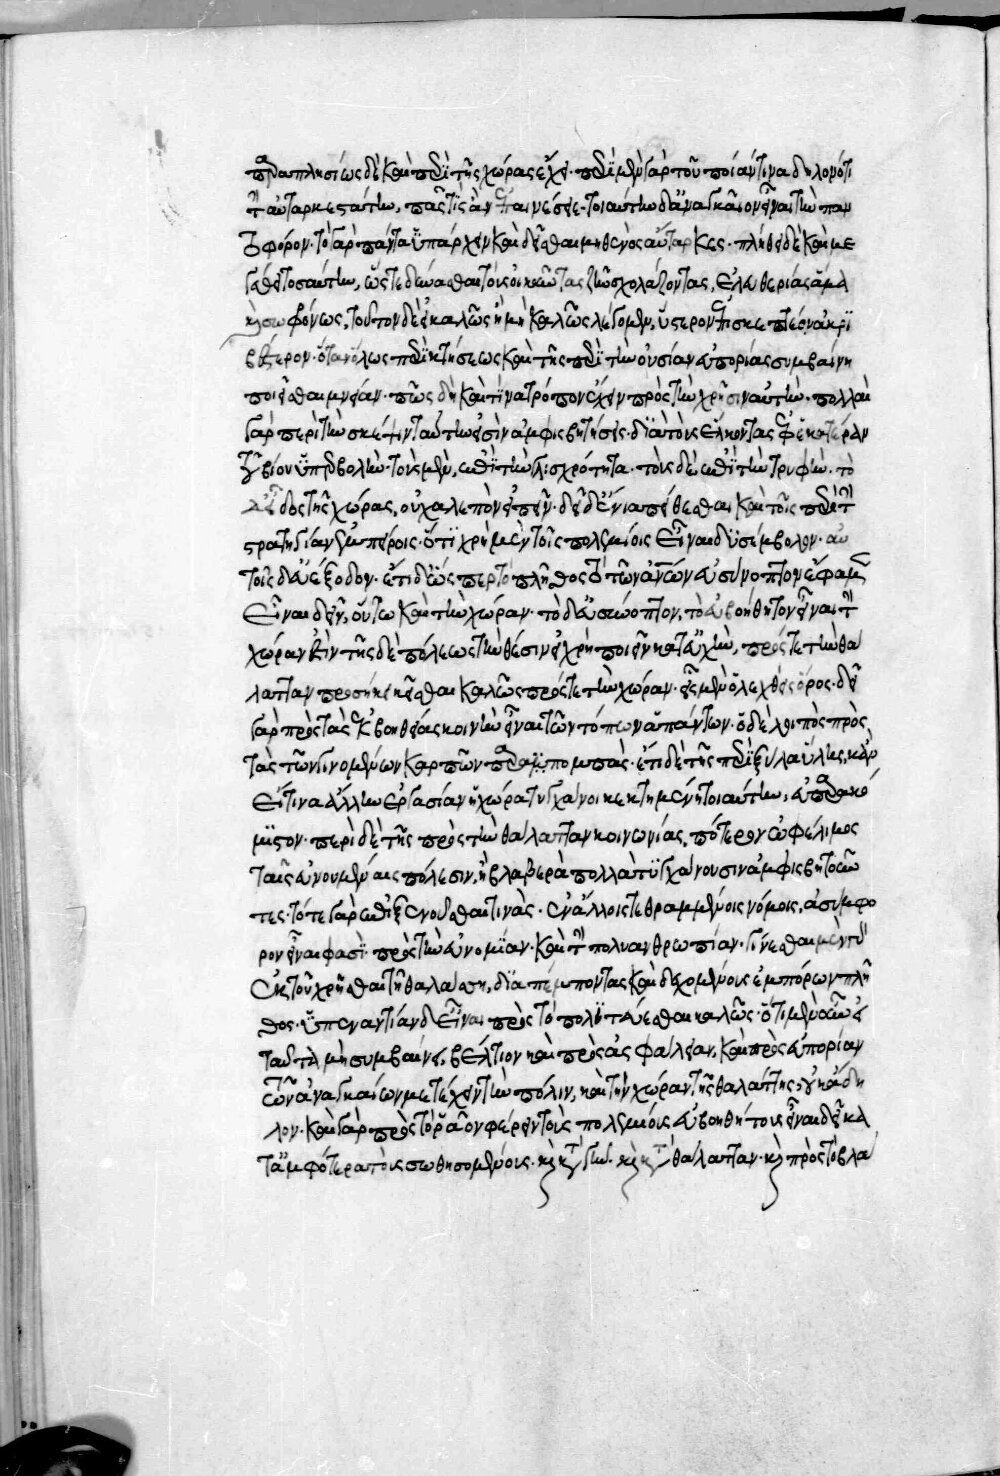 παραπλησίως δὲ καὶ περὶ τῆς χώρας ἔχει· περὶ μὲν γὰρ τοῦ ποίαν τινα δηλονότι
τὴν αὐταρκεστάτην, πᾶς τὶς ἂν ἐπαινέσειε· τοιαύτην δ' ἀναγκαῖον εἶναι τὴν παν
τοφόρον· τὸ γὰρ πάντα ὑπάρχειν καὶ δεῖσθαι μηθενὸς αὔταρκες· πλήθει δὲ καὶ με
γέθει τοσαύτην, ὥστε δύνασθαι τοὺς οἰκοῦντας ζῆν σχολάζοντας, ἐλευθερίας ἅμα
καὶ σωφρόνως, τοῦτον δὲ εἰ καλῶς ἢ μὴ καλῶς λέγομεν, ὕστερον ἐπισκεπτέον ἀκρι
βέστερον· ὅταν ὅλως περὶ κτήσεως καὶ τῆς περὶ τὴν οὐσίαν εὐπορίας συμβαίνῃ
ποιεῖσθαι μνείαν· πῶς δεῖ καὶ τίνα τρόπον ἔχειν πρὸς τὴν χρῆσιν αὐτήν· πολλαὶ
γὰρ περὶ τὴν σκέψιν ταύτην εἰσὶν ἀμφισβητήσεις· διὰ τοὺς ἕλκοντας ἐφ' ἑκατέραν
τοῦ βίου ὑπερβολήν· τοὺς μὲν, ἐπὶ τὴν γλισχρότητα· τοὺς δὲ, ἐπὶ τὴν τρυφήν· τὸ
δ' εἶδος τῆς χώρας, οὐ χαλεπὸν εἰπεῖν· δεῖ δ' ἔνια πείθεσθαι καὶ τοῖς περὶ τὴν
στρατηγίαν ἐμπείροις· ὅτι χρὴ μὲν τοῖς πολεμίοις εἶναι δυσέμβολον· αὐ
τοῖς δ' εὐέξοδον· ἔτι δ' ὥσπερ τὸ πλῆθος τὸ τῶν ἀνθρώπων εὐσύνοπτον ἔφαμεν
εἶναι δεῖν, οὕτω καὶ τὴν χώραν· τὸ δ' εὐσύνοπτον, τὸ εὐβοήθητον εἶναι τὴν
χώραν ἐστὶν τῆς δὲ πόλεως τὴν θέσιν εἰ χρὴ ποιεῖν κατ' εὐχὴν, πρός τε τὴν θά
λατταν προσήκει κεῖσθαι καλῶς πρός τε τὴν χώραν· εἷς μὲν ὁ λεχθεὶς ὅρος· δεῖ
γὰρ πρὸς τὰς ἐκβοηθείας κοινὴν εἶναι τῶν τόπων ἁπάντων· ὁ δὲ λοιπὸς πρὸς
τὰς τῶν γινομένων καρπῶν παραπομπάς· ἔτι δὲ τῆς περὶ ξύλα ὕλης, κἂν
εἴ τινα ἄλλην ἐργασίαν ἡ χώρα τυγχάνοι κεκτημένη τοιαύτην, εὐπαρακό
μιστον· περὶ δὲ τῆς πρὸς τὴν θάλατταν κοινωνίας, πότερον ὠφέλιμος
ταῖς εὐνομουμέναις πόλεσιν, ἢ βλαβερὰ πολλὰ τυγχάνουσιν ἀμφισβητοῦν
τες· τό τε γὰρ ἐπιξενοῦσθαι τινὰς· ἐν ἄλλοις τεθραμμένοις νόμοις, ἀσύμφο
ρον εἶναι φασὶ· πρὸς τὴν εὐνομίαν· καὶ τὴν πολυανθρωπίαν· γίνεσθαι μὲν γὰρ
ἐκ τοῦ χρῆσθαι τῇ θαλάσσῃ, διαπέμποντας καὶ δεχομένους ἐμπόρων πλῆ
θος· ὑπεναντίαν δ' εἶναι πρὸς τὸ πολιτεύεσθαι καλῶς· ὅτι μὲν οὖν εἰ
ταῦτα μὴ συμβαίνει, βέλτιον καὶ πρὸς ἀσφάλειαν, καὶ πρὸς εὐπορίαν
τῶν ἀναγκαίων μετέχειν τὴν πόλιν, καὶ τὴν χώραν τῆς θαλάττης, οὐκ ἄδη
λον· καὶ γὰρ πρὸς τὸ ῥᾷον φέρειν τοὺς πολεμίους εὐβοηθήτους εἶναι δεῖ κα
τ' ἀμφότερα τοὺς σωθησομένους· καὶ κατὰ γῆν· καὶ κατὰ θάλατταν· καὶ πρὸς τὸ βλά